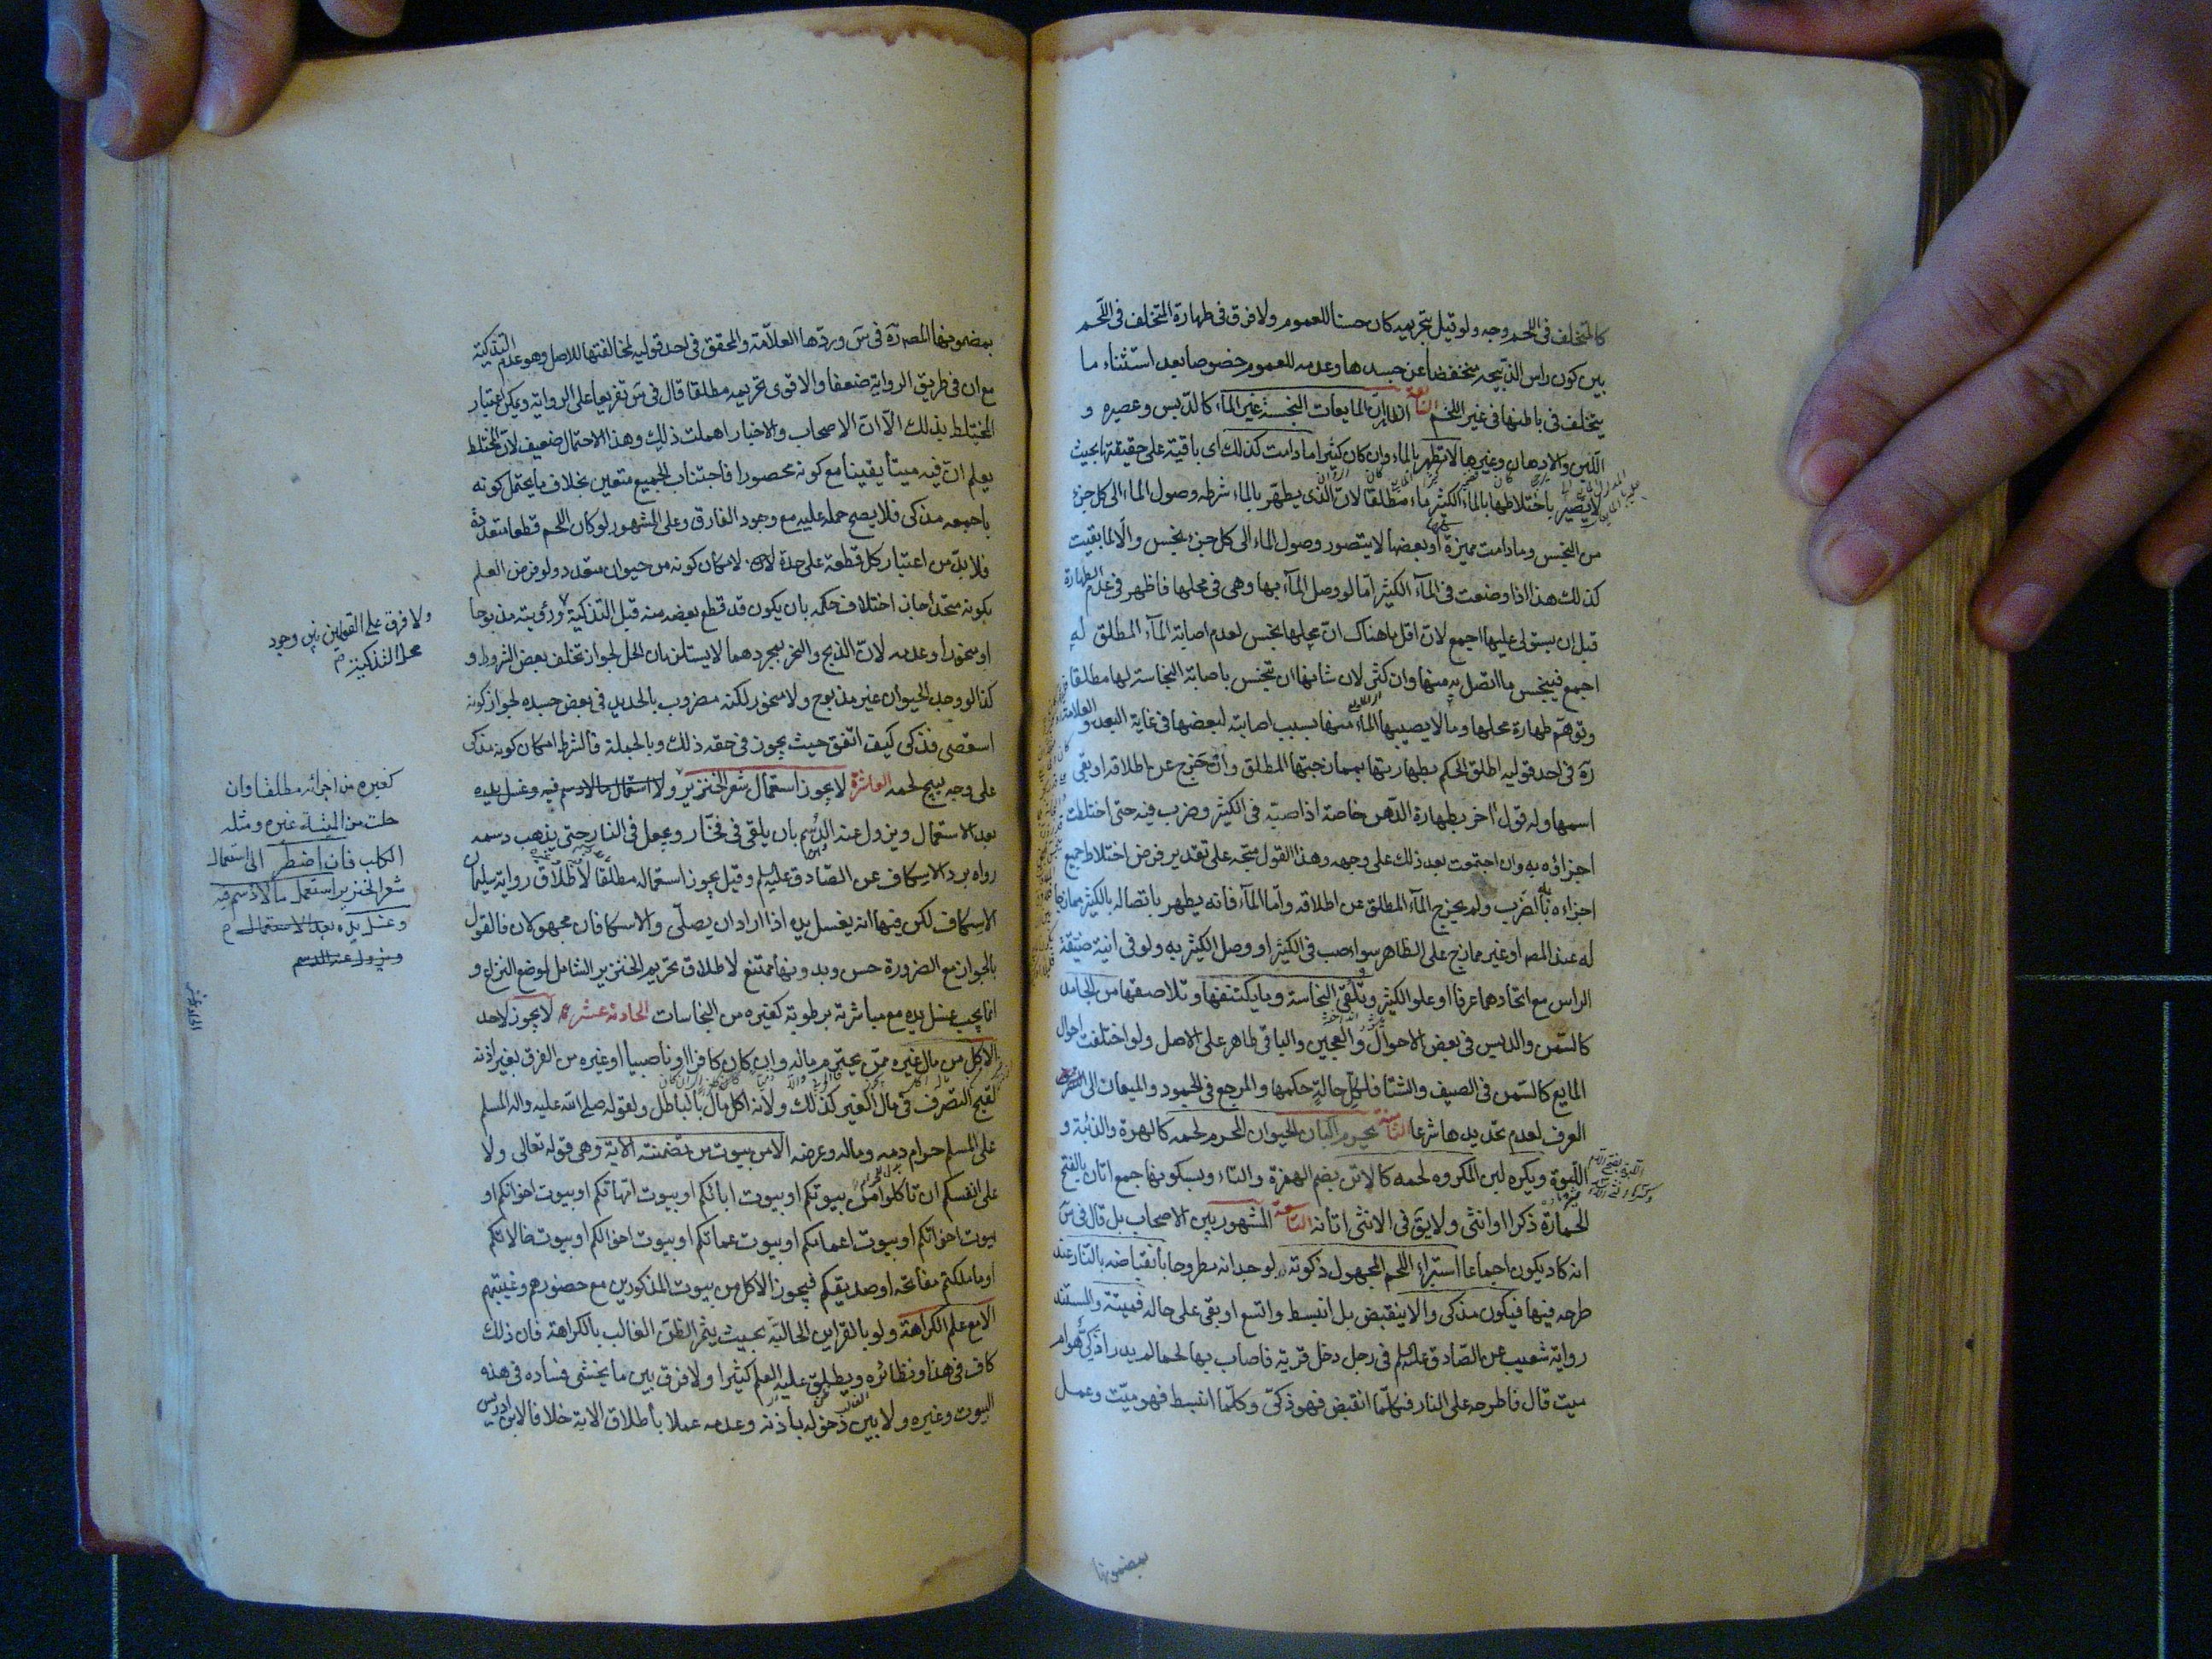 كالمتخلف فى اللحم وجه ولو قيل بتحريمه كان حسنا للعموم ولا فرق فى طهارة المتخلف فى اللحم
بين كون راس الذبيحه منخفضا عن جسدها وعدمه للعموم خصوصا بعد استثناء ما
يتخلف فى باطنها فى غير اللحم السابعه الظاهر ان المايعات النجسة غير الماء كالدبس وعصيره و
اللبن والادهان وغيرها لا تطهر بالماء وان كان كثيرا ما دامت كذلك اى باقية على حقيقتها بحيث
لا يصير باختلاطها بالماء الكثير ماء مطلقا لان الذى يطهر بالماء شرطه وصول الماء الى كل جزء
من النجس وما دامت مميزة او بعضها لا يتصور وصول الماء الى كل جزء نجس والا لما بقيت
كذلك هذا اذا وضعت فى الماء الكثير اما لو وصل الماء بها وهى فى محلها فاظهر فى عدم الطهارة
قبل ان يستولى عليها اجمع لان اقل ما هناك ان محلها نجس لعدم اصابة الماء المطلق له
اجمع فينجس ما اتصل به منها وان كثر لان شانها ان تنجس باصابة النجاسة لها مطلقا
وتوهم طهارة محلها وما لا يصيبها الماء منها بسبب اصابته لبعضها فى غاية البعد والعلامة
ره فى احد قوليه اطلق الحكم بطهارتها بممازجتها المطلق وان خرج عن اطلاقه او بقى
اسمها وله قول اخر بطهارة الدهن خاصة اذا صب فى الكثير وضرب فيه حتى اختلطت
اجزاؤه به وان اجتمعت بعد ذلك على وجهه وهذا القول متجه على تقدير فرض اختلاط جميع
اجزاءه بالضرب ولم يخرج الماء المطلق عن اطلاقه واما الماء فانه يطهر باتصاله بالكثير ممازجا
له عند المصه او غير ممازج على الظاهر سواء صب فى الكثير او وصل الكثير به ولو فى انية ضيقة
الراس مع اتحادهما عرفا او علو الكثير وتلقى النجاسة وما يكتنفها وتلاصقها من الجامد
كالسمن والدبس فى بعض الاحوال والعجين والباقى طاهر على الاصل ولو اختلفت احوال
المايع كالسمن فى الصيف والشتا فلكل حالة حكمها والمرجع فى الجمود والميعان الى
العرف لعدم تحديدها شرعا الثامنه يحرم البان الحيوان المحرم لحمه كالهرة والذئبة و
اللبوة ويكره لبن المكروه لحمه كالاتن بضم الهمزة والتاء وبسكونها جمع اتان بالفتح
الحمارة ذكرا او انثى ولا يق فى الانثى اتانة التاسعه المشهور بين الاصحاب بل قال فى س
انه كاد يكون اجماعا استبراء اللحم المجهول ذكوته لوجدانه مطروحا بانقباضه بالنار عند
طرحه فيها فيكون مذكى والا ينقبض بل انبسط واتسع او بقى على حاله فميتة والمستند
رواية شعيب عن الصادق عليه السلم فى رجل دخل قرية فاصاب بها لحما لم يدر اذكى هو ام
ميت قال فاطرحه على النار فكلما انقبض فهو ذكى وكلما انبسط فهو ميت وعمل
بمضمونها
بمضمونها المصه ره فى س وردها العلامة والمحقق فى احد قوليه لمخالفتها للاصل وهو عدم التذكية
مع ان فى طريق الرواية ضعفا والاقوى تحريمه مطلقا قال فى س تفريعا على الرواية ويمكن اعتبار
المختلط بذلك الا ان الاصحاب والاخبار اهملت ذلك وهذا الاحتمال ضعيف لان المختلط
يعلم ان فيه ميتا يقينا مع كونه محصورا فاجتناب الجميع متعين بخلاف ما يحتمل كونه
باجمعه مذكى فلا يصح حمله عليه مع وجود الفارق وعلى المشهور لو كان اللحم قطعا متعددة
فلا بد من اعتبار كل قطعة على حدة لامكان كونه من حيوان متعدد ولو فرض العلم
بكونه متحدا جاز اختلاف حكمه بان يكون قد قطع بعضه منه قبل التذكية ورؤيته مذبوحا
او منحورا وعدمه لان الذبح والنحر بمجردهما لا يستلزمان الحل لجواز تخلف بعض الشروط و
كذا لو وجد الحيوان غير مذبوح ولا منحور لكنه مضروب بالحديد فى بعض جسده لجواز كونه
استعصى فذكى كيف اتفق حيث يجوز فى حقه ذلك وبالجملة فالشرط امكان كونه مذكى
على وجه يبيح لحمه العاشرة لا يجوز استعمال شعر الخنزير ولا استعمال ما لا دسم فيه وغسل يده
بعد الاستعمال ويزول عنه الدسم بان يلقى فى فخار ويجعل فى النار حتى يذهب دسمه
رواه برد الاسكاف عن الصادق عليه السلم وقيل يجوز استعماله مطلقا لاطلاق رواية سليمان
الاسكاف لكن فيها انه يغسل يده اذا اراد ان يصلى والاسكافان مجهولان فالقول
بالجواز مع الضرورة حسن وبدونها ممتنع لاطلاق تحريم الخنزير الشامل لموضع النزاع و
انما يجب غسل يده مع مباشرته برطوبة كغيره من النجاسات الحاديه عشرة لا يجوز لاحد
الاكل من مال غيره ممن يحترم ماله وان كان كافرا او ناصبيا او غيره من الفرق بغير اذنه
لقبح التصرف فى مال الغير كذلك ولانه اكل مال بالباطل ولقوله صلى الله عليه واله المسلم
على المسلم حرام دمه وماله وعرضه الا من بيوت من تضمنته الاية وهى قوله تعالى ولا
على انفسكم ان تاكلوا من بيوتكم او بيوت ابائكم او بيوت امهاتكم او بيوت اخوانكم او
بيوت اخواتكم او بيوت اعمامكم او بيوت عماتكم او بيوت اخوالكم او بيوت خالاتكم
او ما ملكتم مفاتحه او صديقكم فيجوز الاكل من بيوت المذكورين مع حضورهم وغيبتهم
الا مع علم الكراهة ولو بالقراين الحالية بحيث يثمر الظن الغالب بالكراهة فان ذلك
كاف فى هذا ونظائره ويطلق عليه العلم كثيرا ولا فرق بين ما يخشى فساده فى هذه
البيوت وغيره ولا بين دخوله باذنه وعدمه عملا باطلاق الاية خلافا لابن ادريس
ولا فرق على القولين بين وجود
محل التذكيه
كغيره من اجزائه مطلقا وان
حلت من الميتة غيره ومثله
الكلب فان اضطر الى استعمال
شعر الخنزير استعمل ما لا دسم فيه
وغسل يده بعد الاستعمال
ويزول عنه الدسم